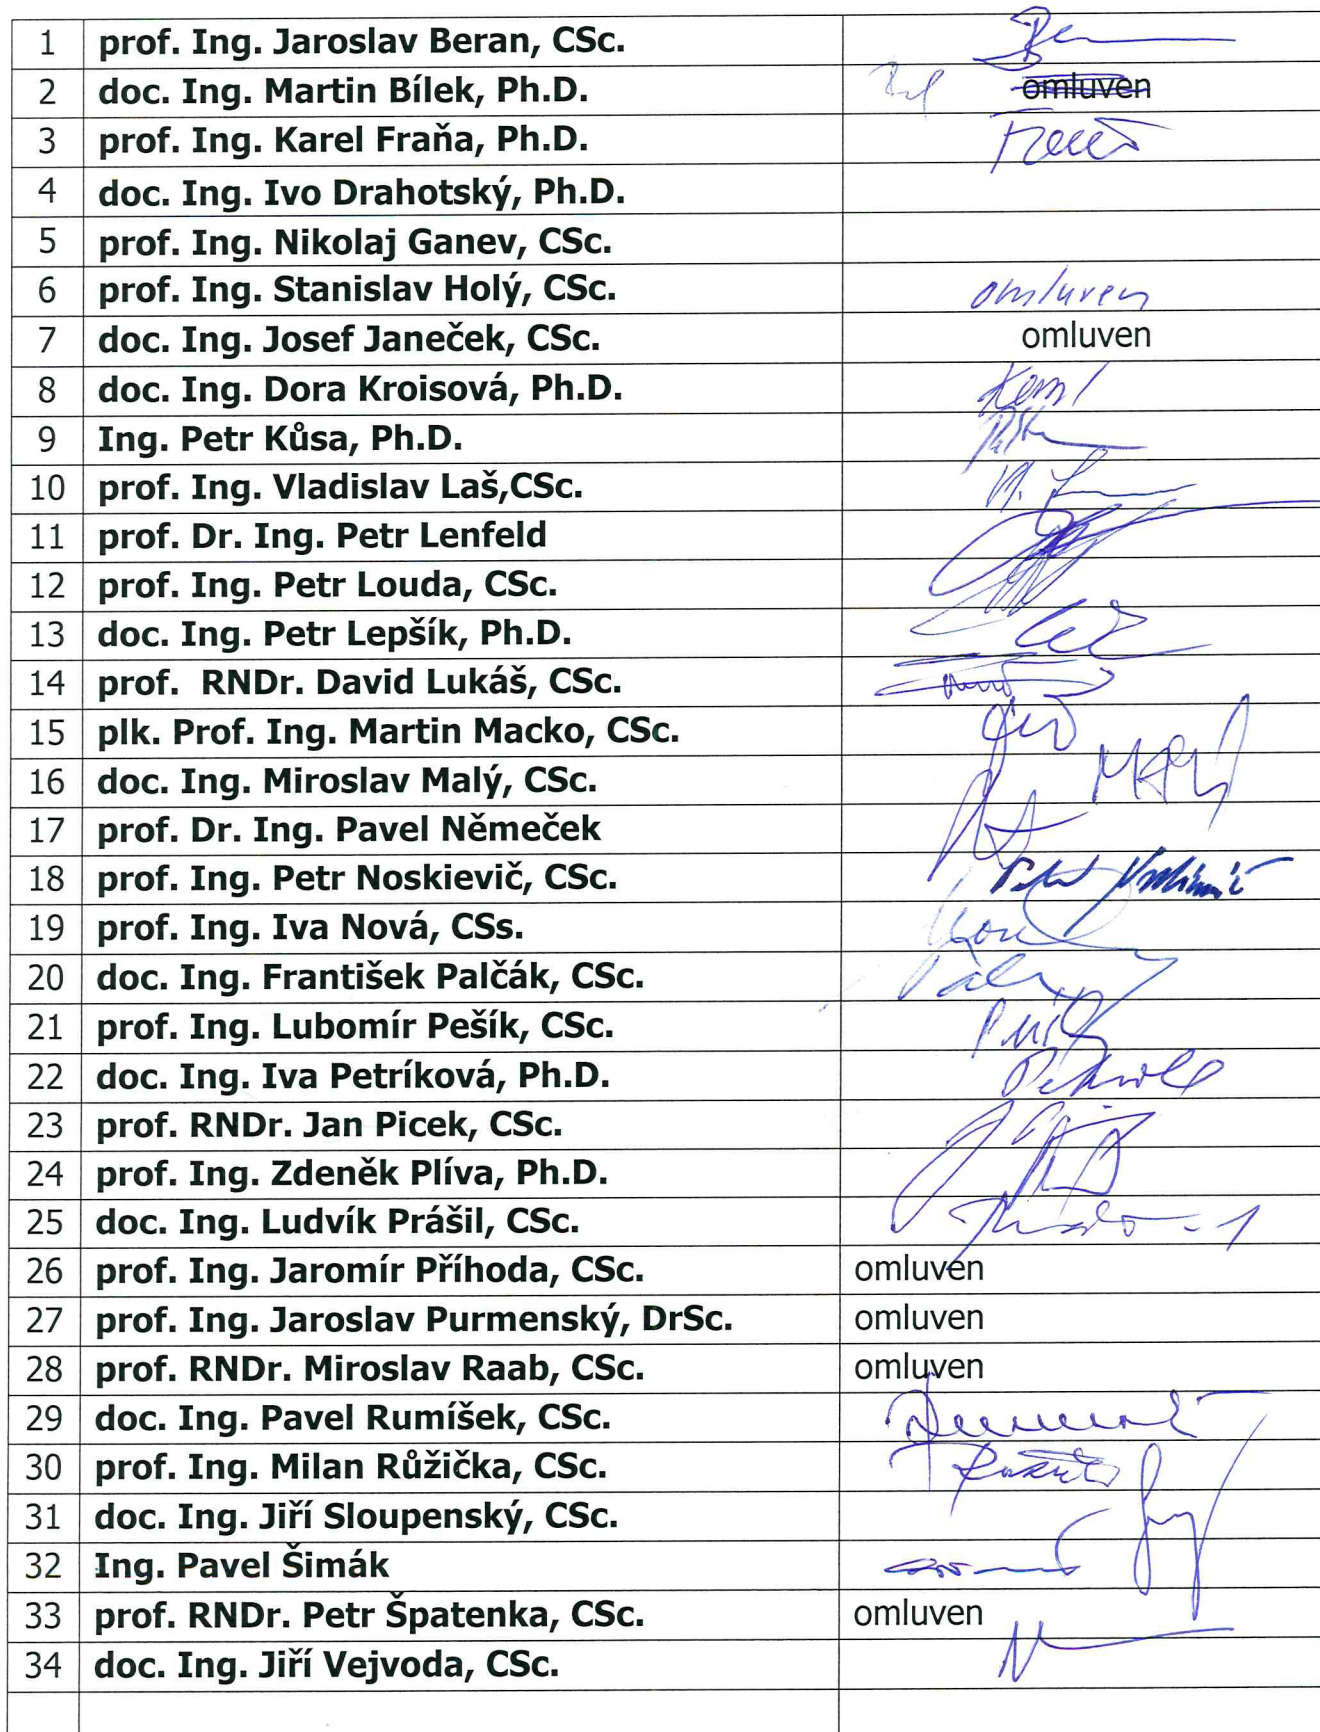 1 prof. Ing. Jaroslav Beran, CSc.
2 doc. Ing. Martin Bílek, Ph.D. omluven
3 prof. Ing. Karel Fraňa, Ph.D.
4 doc. Ing. Ivo Drahotský, Ph.D.
5 prof. Ing. Nikolaj Ganev, CSc.
6 prof. Ing. Stanislav Holý, CSc. omluven
7 doc. Ing. Josef Janeček, CSc. omluven
8 doc. Ing. Dora Kroisová, Ph.D.
9 Ing. Petr Kůsa, Ph.D.
10 prof. Ing. Vladislav Laš,CSc.
11 prof. Dr. Ing. Petr Lenfeld
12 prof. Ing. Petr Louda, CSc.
13 doc. Ing. Petr Lepšík, Ph.D.
14 prof. RNDr. David Lukáš, CSc.
15 plk. Prof. Ing. Martin Macko, CSc.
16 doc. Ing. Miroslav Malý, CSc.
17 prof. Dr. Ing. Pavel Němeček
18 prof. Ing. Petr Noskievič, CSc.
19 prof. Ing. Iva Nová, CSs.
20 doc. Ing. František Palčák, CSc.
21 prof. Ing. Lubomír Pešík, CSc.
22 doc. Ing. Iva Petríková, Ph.D.
23 prof. RNDr. Jan Picek, CSc.
24 prof. Ing. Zdeněk Plíva, Ph.D.
25 doc. Ing. Ludvík Prášil, CSc.
26 prof. Ing. Jaromír Příhoda, CSc. omluven
27 prof. Ing. Jaroslav Purmenský, DrSc. omluven
28 prof. RNDr. Miroslav Raab, CSc. omluven
29 doc. Ing. Pavel Rumíšek, CSc.
30 prof. Ing. Milan Růžička, CSc.
31 doc. Ing. Jiří Sloupenský, CSc.
32 Ing. Pavel Šimák
33 prof. RNDr. Petr Špatenka, CSc. omluven
34 doc. Ing. Jiří Vejvoda, CSc.